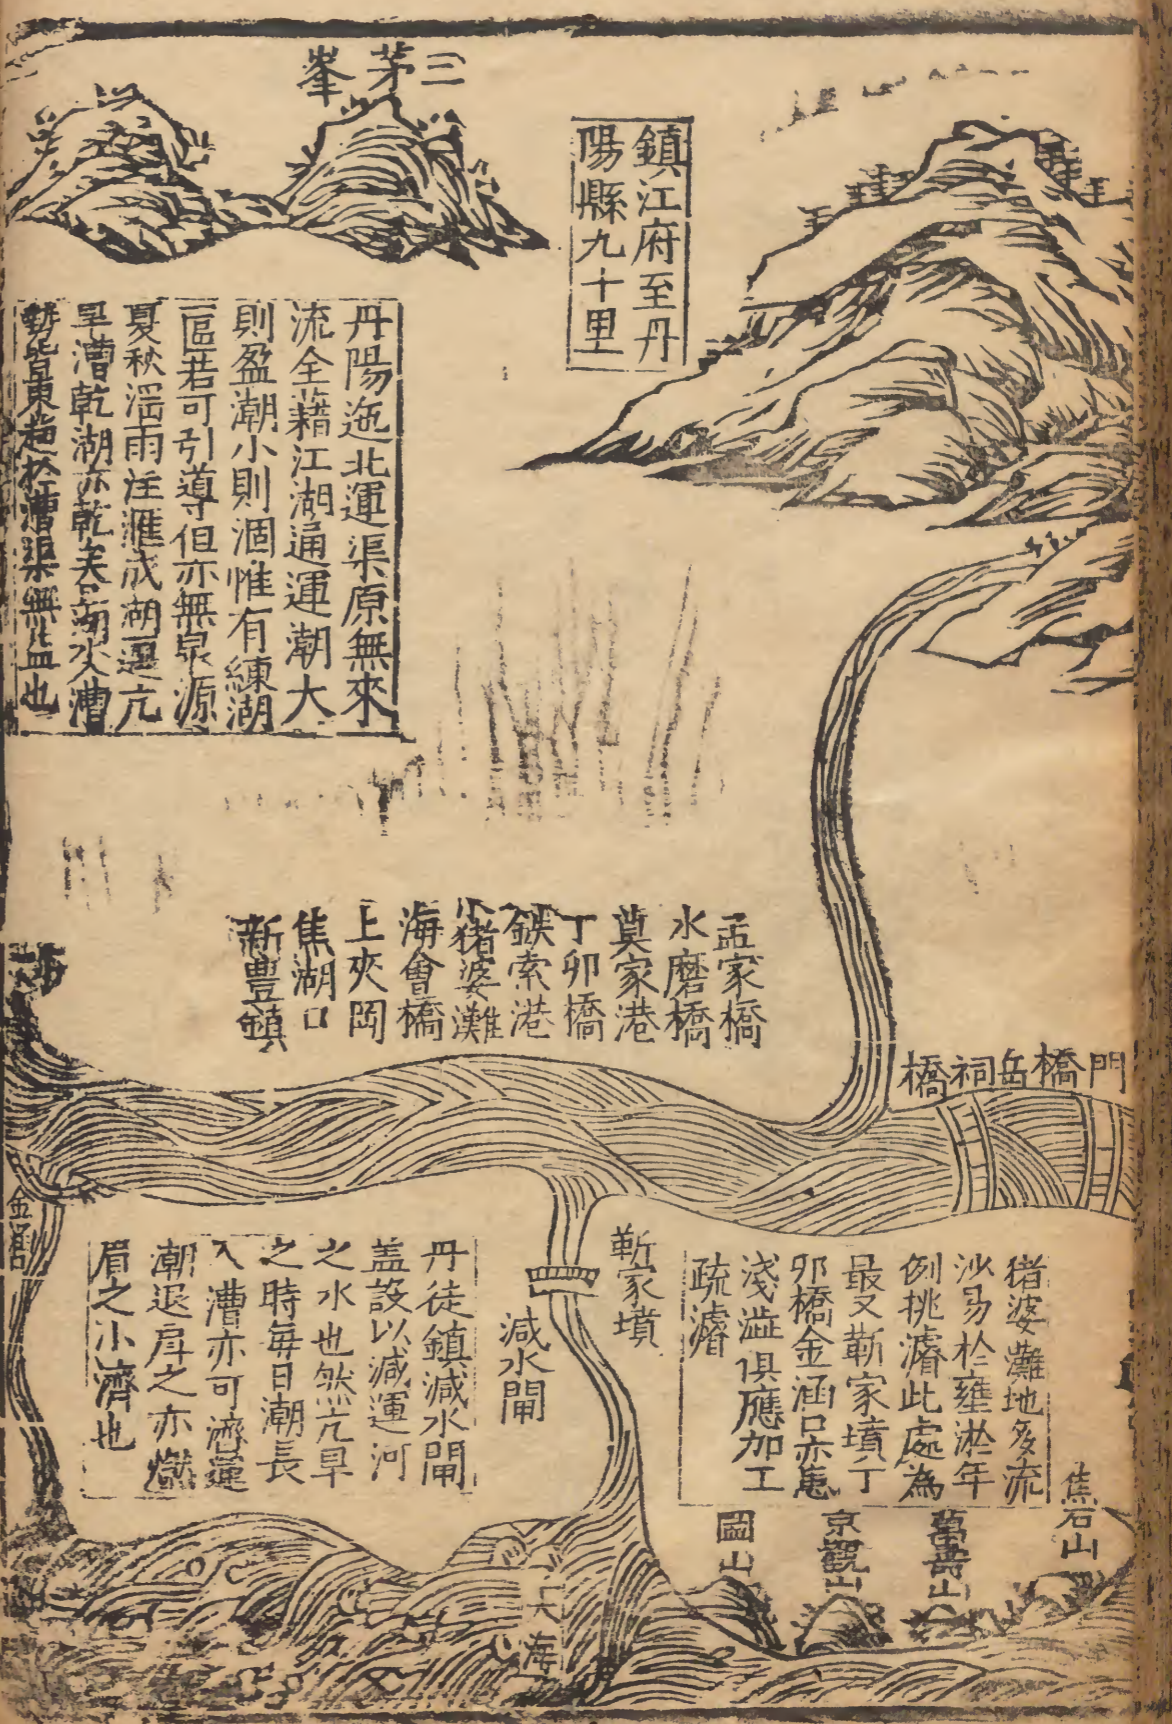 三茅峯
鎮江府至丹
陽縣九十里
丹陽迤北運渠原無來
流全藉江湖通運潮大
則盈潮小則涸惟有練湖
一區若可引導但亦無泉源
夏秋淫雨注滙成湖遇亢
旱漕乾湖亦乾矣湖水漕
皆東趨於漕渠無益也
孟家橋
水磨橋
奠家港
丁卯橋
鐵索港
猪婆灘
海會橋
上夾岡
焦湖口
新豐鎮
門橋岳祠橋
猪婆灘地多流
沙易於壅淤年
例挑濬此處為
最又靳家墳丁
卯橋金涵口亦
淺澁俱應加工
疏濬
靳家墳
減水閘
丹徒鎮減水閘
盖設以減運河
之水也然亢旱
之時每日潮長
入漕亦可濟運
潮退啓之亦燃
眉之小濟也
焦石山
萬壽山
京觀山
圌山
大海